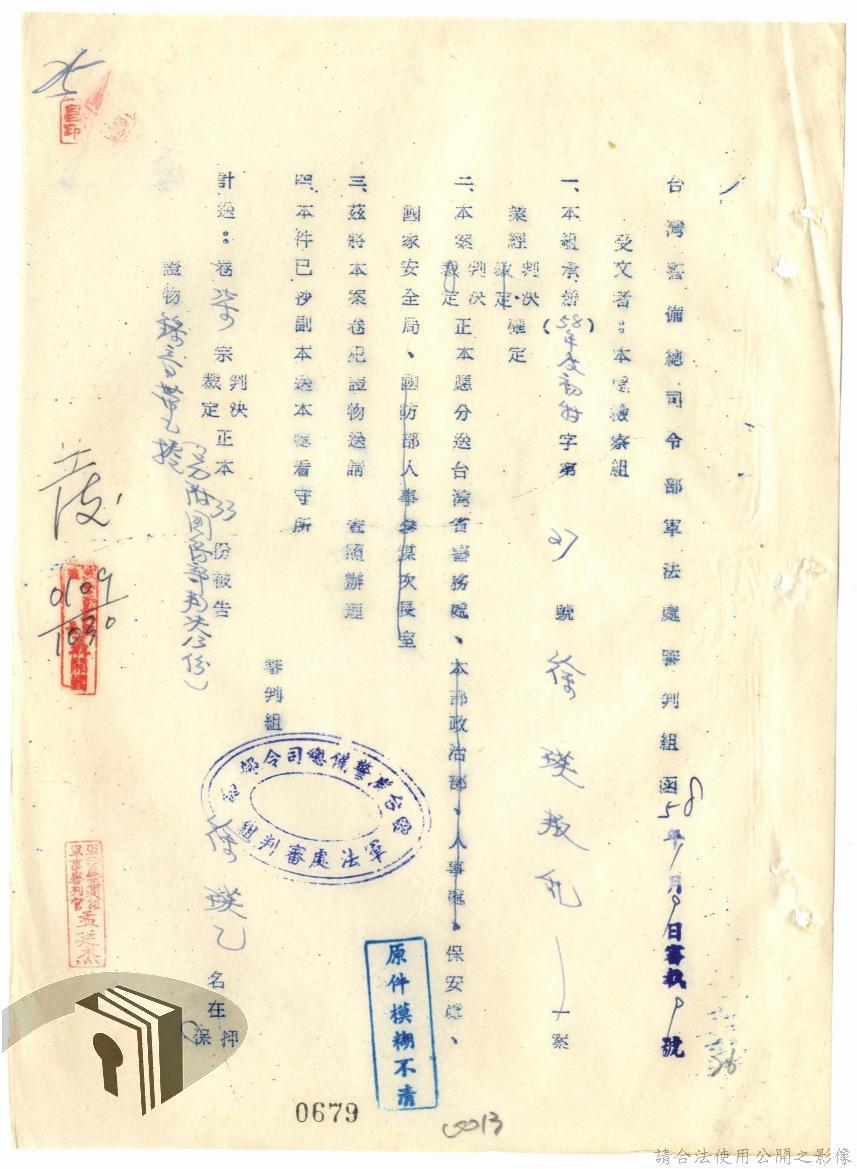 台灣警備總司令部軍法處審判組函
58年1月9日審執9號
受文者：本處檢察組
一、本組承辦（58年度初特字第27號徐瑛叛亂一案
業經判決裁定、確定
二、本案判決裁定正本應分送台灣省警務處、本部政治部、人事處、保安處、
國家安全局、國防部人事參謀次長室
三、茲將本案卷宗證物送請 查照辦理
四、本件已抄副本送本處看守所
計送：卷柒宗判決裁定正本33份被告徐瑛乙名在押保
證物錄音帶乙捲（另附國防部判決
份）
審判組
台灣警備總司令部
軍法處審判組
0109
1030
軍事審判官
原件模糊不清
0679
0013
26
請合法使用公開之影像